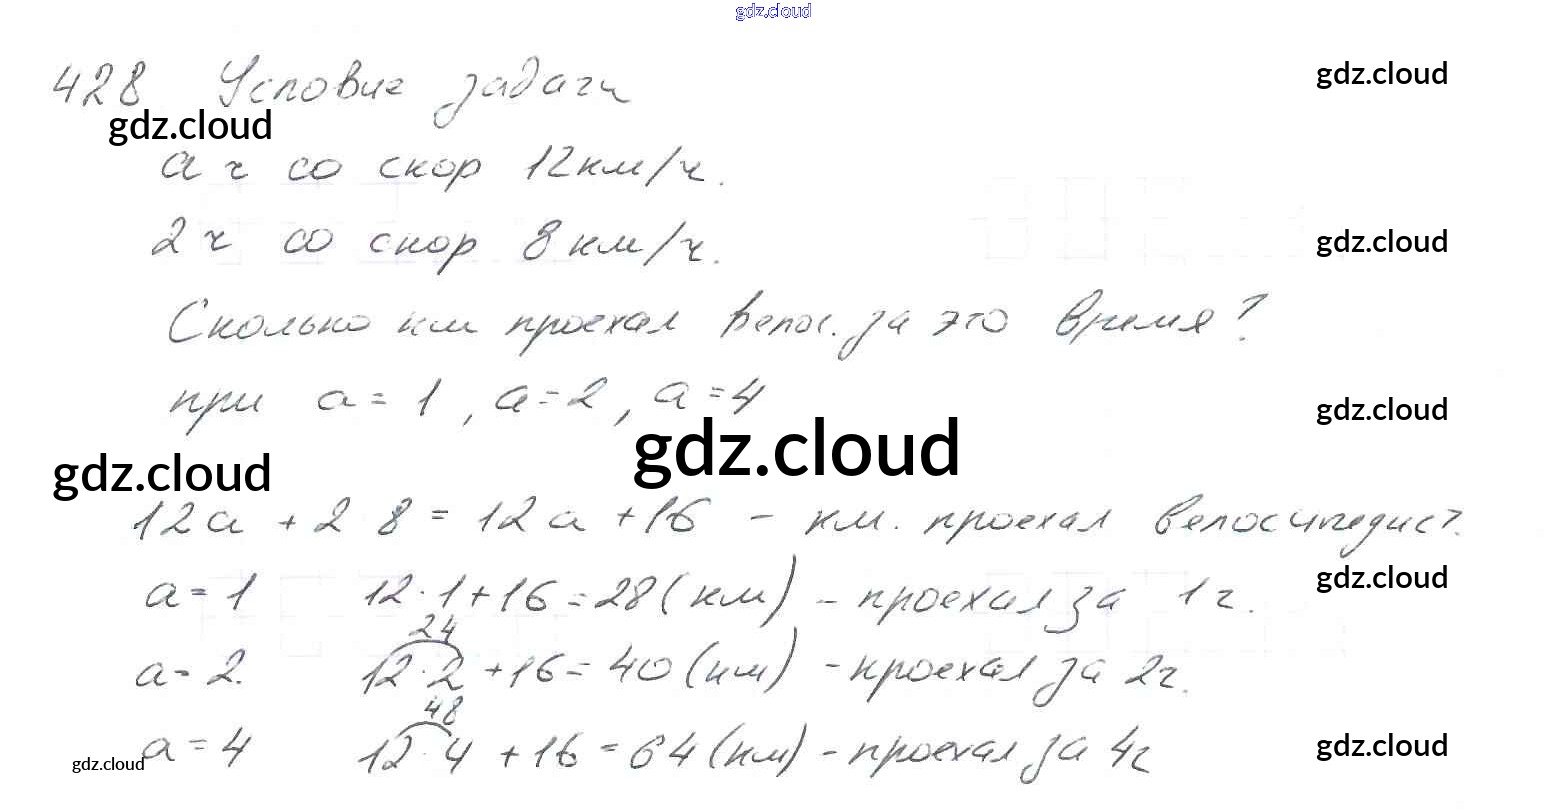 gdz.cloud
428 Условие задачи
gdz.cloud
gdz.cloud
а ч со скор 12км/ч.
2 ч со скор 8 км/ч.
gdz.cloud
Сколько км проехал велос. за это время?
при а = 1, а = 2, а = 4
gdz.cloud
gdz.cloud
gdz.cloud
12а + 2 8 = 12а + 16 - км. проехал велосипедист.
gdz.cloud
а = 1 12·1+16=28(км) - проехал за 1ч.
24
а = 2. 12·2+16=40(км) - проехал за 2ч.
48
а = 4 12·4+16=64(км) - проехал за 4ч
gdz.cloud
gdz.cloud